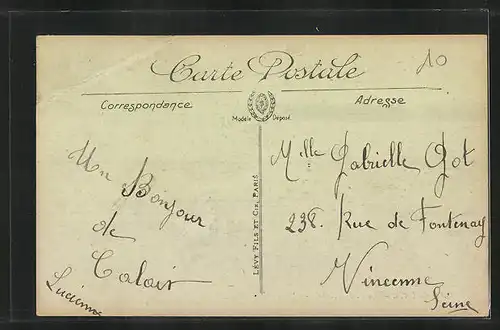 Carte Postale
10
Correspondance
Adresse
Modèle Déposé
Un
Bonjour
de
Calais
Lucienne
LÉVY FILS ET CIE, PARIS
Mlle Gabrielle Got
238. Rue de Fontenay
Vincenne
Seine